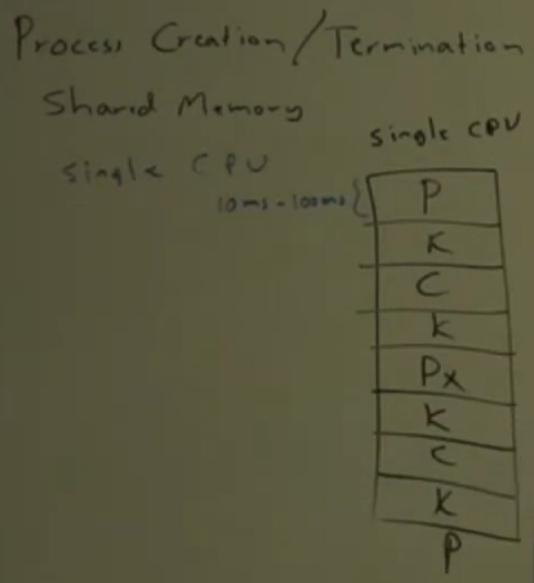 Process Creation/Termination
Shared Memory
single CPU
single CPU
10ms-100ms
P
K
C
K
Px
K
C
K
P